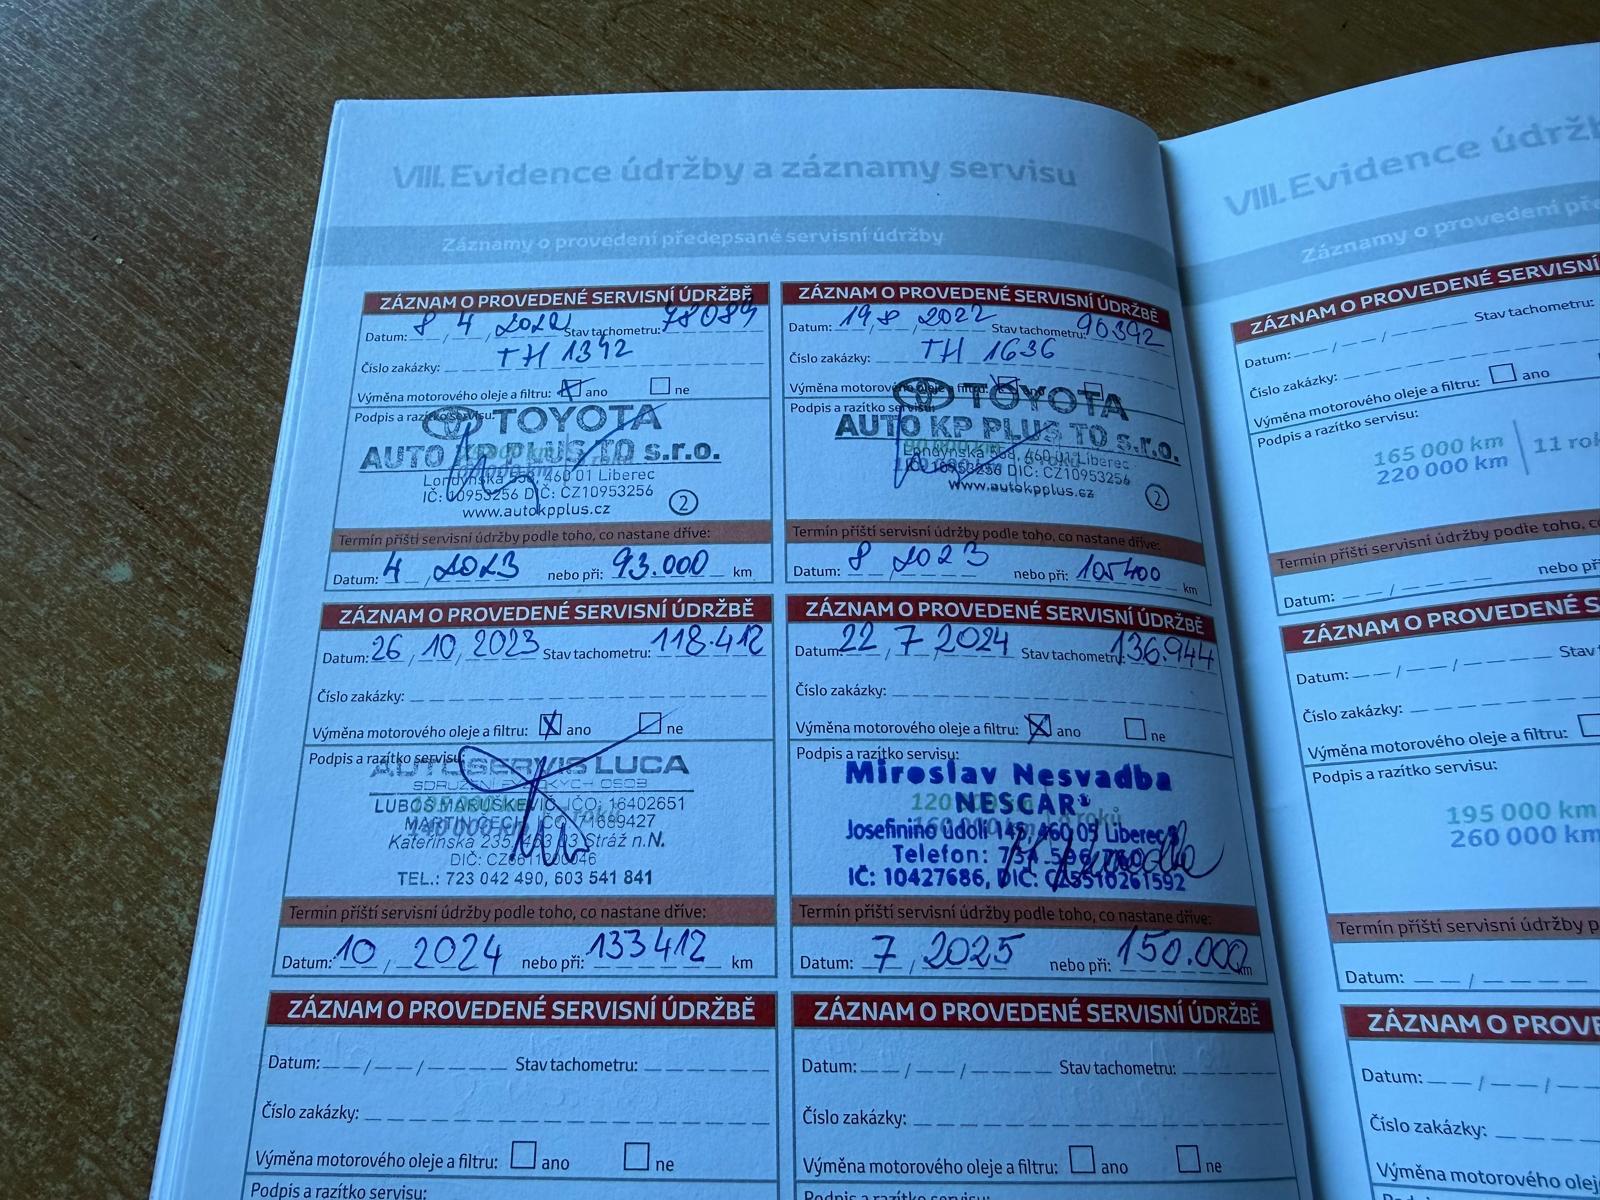 VIII. Evidence údržby a záznamy servisu
Záznamy o provedení předepsané servisní údržby
ZÁZNAM O PROVEDENÉ SERVISNÍ ÚDRŽBĚ
Datum: 8 / 4 / 2022 Stav tachometru: 78089
Číslo zakázky: TH 1392
Výměna motorového oleje a filtru: ano ne
Podpis a razítko servisu:
TOYOTA
AUTO KP PLUS TO s.r.o.
Londýnská 558, 460 01 Liberec
IČ: 10953256 DIČ: CZ10953256
www.autokpplus.cz
2
Termín příští servisní údržby podle toho, co nastane dříve:
Datum: 4 / 2023 nebo při: 93.000 km
ZÁZNAM O PROVEDENÉ SERVISNÍ ÚDRŽBĚ
Datum: 19 / 8 / 2022 Stav tachometru: 90392
Číslo zakázky: TH 1636
Výměna motorového oleje a filtru:
Podpis a razítko servisu:
TOYOTA
AUTO KP PLUS TO s.r.o.
Londýnská 558, 460 01 Liberec
IČ: 10953256 DIČ: CZ10953256
www.autokpplus.cz
2
Termín příští servisní údržby podle toho, co nastane dříve:
Datum: 8 / 2023 nebo při: 105400 km
ZÁZNAM O PROVEDENÉ SERVISNÍ ÚDRŽBĚ
Datum: 26 / 10 / 2023 Stav tachometru: 118.412
Číslo zakázky:
Výměna motorového oleje a filtru: X ano ne
Podpis a razítko servisu:
AUTOSERVIS LUCA
SDRUŽENÍ FYZICKÝCH OSOB
LUBOŠ MARUSKEVIČ, IČO: 16402651
MARTIN ČECH, IČO: 71689427
Kateřinská 235, 463 03 Stráž n.N.
TEL.: 723 042 490, 603 541 841
Termín příští servisní údržby podle toho, co nastane dříve:
Datum: 10 / 2024 nebo při: 133412 km
ZÁZNAM O PROVEDENÉ SERVISNÍ ÚDRŽBĚ
Datum: 22 / 7 / 2024 Stav tachometru: 136.944
Číslo zakázky:
Výměna motorového oleje a filtru: X ano ne
Podpis a razítko servisu:
Miroslav Nesvadba
NESCAR
Josefinino údolí 149, 460 05 Liberec
Telefon:
IČ: 10427686, DIČ: CZ5510261592
Termín příští servisní údržby podle toho, co nastane dříve:
Datum: 7 / 2025 nebo při: 150.000 km
ZÁZNAM O PROVEDENÉ SERVISNÍ ÚDRŽBĚ
Datum: / / Stav tachometru:
Číslo zakázky:
Výměna motorového oleje a filtru: ano ne
Podpis a razítko servisu:
ZÁZNAM O PROVEDENÉ SERVISNÍ ÚDRŽBĚ
Datum: / / Stav tachometru:
Číslo zakázky:
Výměna motorového oleje a filtru: ano ne
Podpis a razítko servisu:
VIII. Evidence údržb
Záznamy o provedení pře
ZÁZNAM O PROVEDENÉ SERVISNÍ
Datum: / / Stav tachometru:
Číslo zakázky:
Výměna motorového oleje a filtru: ano
Podpis a razítko servisu:
165 000 km
220 000 km
11 rok
Termín příští servisní údržby podle toho, co
Datum: / nebo při
ZÁZNAM O PROVEDENÉ S
Datum: / / Stav
Číslo zakázky:
Výměna motorového oleje a filtru:
Podpis a razítko servisu:
195 000 km
260 000 km
Termín příští servisní údržby p
Datum: /
ZÁZNAM O PROVE
Datum: / /
Číslo zakázky:
Výměna motorového olej